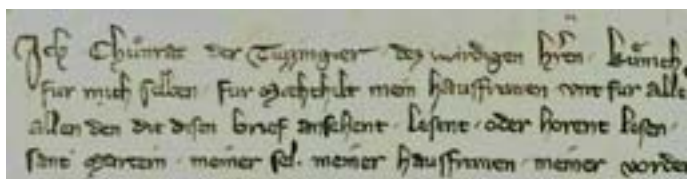 Ich Chunrat der Tuzzinger dez wirdigen hern
fur mich selben fur Mæchthilt mein hausfrawen vnt fur alle
allen den die disen brief ansehent lesent oder horent lesen
sant Martein meiner sel meiner hausfrawen meiner vorder